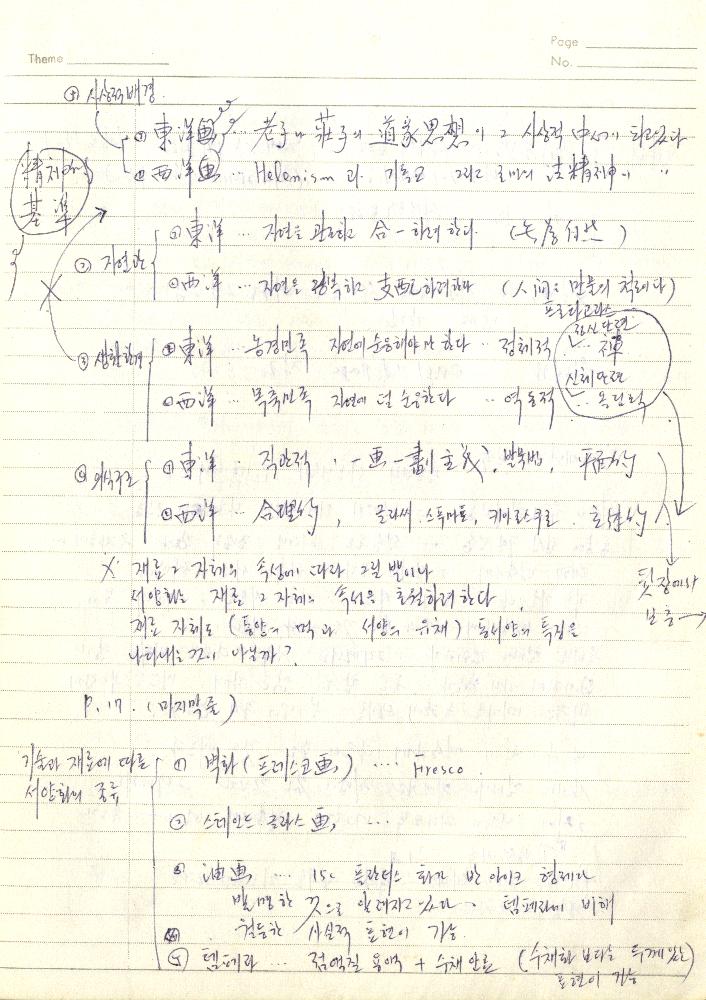 Theme
Page
No.
① 사상적배경.
① 東洋畵 … 老子나 莊子의 道家思想이 그 사상적 中心이 되었다
② 西洋画 … Helenism 과 기독교 그리고 로마의 法精神이 〃
精神的
基準
② 자연관
① 東洋 … 자연을 관조하고 合一하려 한다.
② 西洋 … 자연을 정복하고 支配하려한다 (人间은 만물의 척도이다)
프로타고라스
③ 생활환경
① 東洋 … 농경민족 자연에 순응해야만 한다 … 정체적
정신단련
… 禪
② 西洋 … 목축민족 자연에 덜 순응한다 … 역동적
신체단련
… 올림픽
④ 의식구조
① 東洋 · 직관적 · 一画一劃主義, 발묵법, 平面的
② 西洋 … 合理的, 글라씨. 스푸마토, 키아로스쿠로. 立体的
뒷장에서
보충 →
X 재료 그 자체의 속성에 따라 그릴 뿐이나
서양화는 재료 그 자체의 속성을 초월하려 한다.
재료 자체도 (동양의 먹과 서양의 유채) 동서양의 특징을
나타내는 것이 아닐까?
P. 17. (마지막줄)
기술과 재료에 따른
서양화의 종류
① 벽화 (프레스코画) …. Fresco.
② 스테인드 글라스画, …..
③ 油画 … 15c 플랑더스 화가 반 아이크 형제가
발명한 것으로 알려지고 있다. 템페라에 비해
월등한 사실적 표현이 가능.
⑤ 템페라 … 점액질 용액 + 수채안료 (수채화 보다는 두께있는
표현이 가능